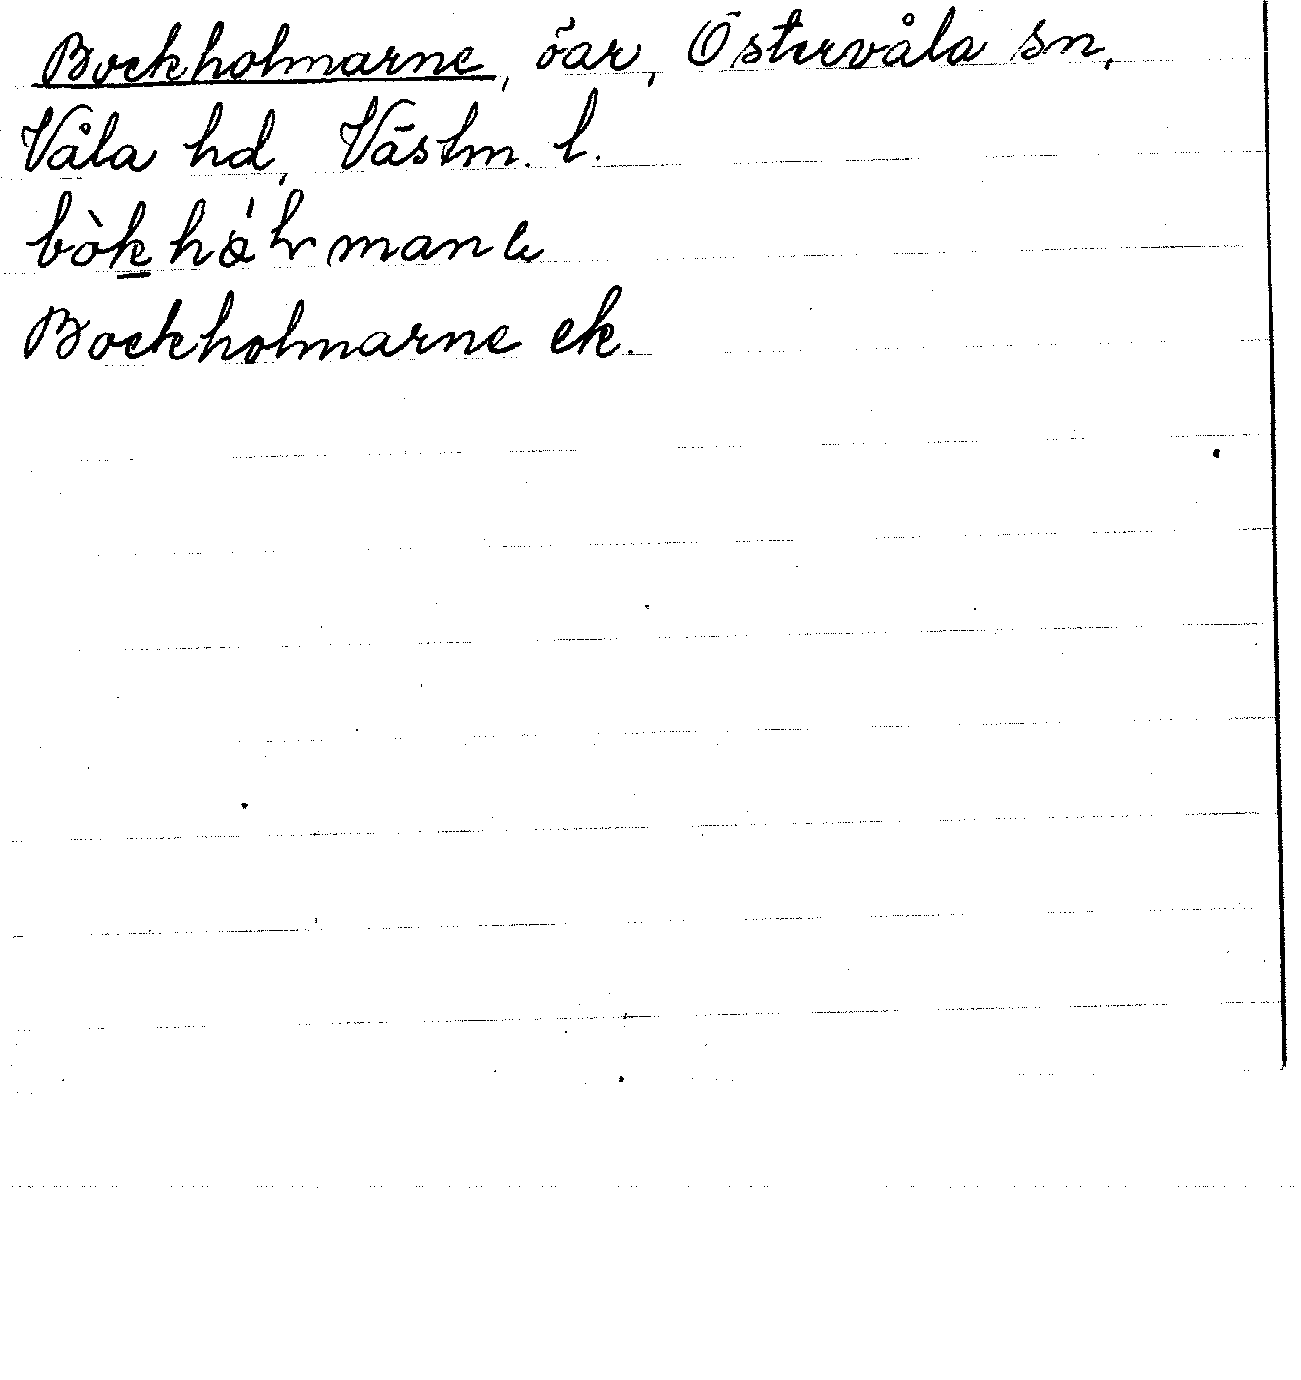 Bockholmarne, öar, Östervåla sn,
Våla hd, Västm. l.
Bockholmarne ek.